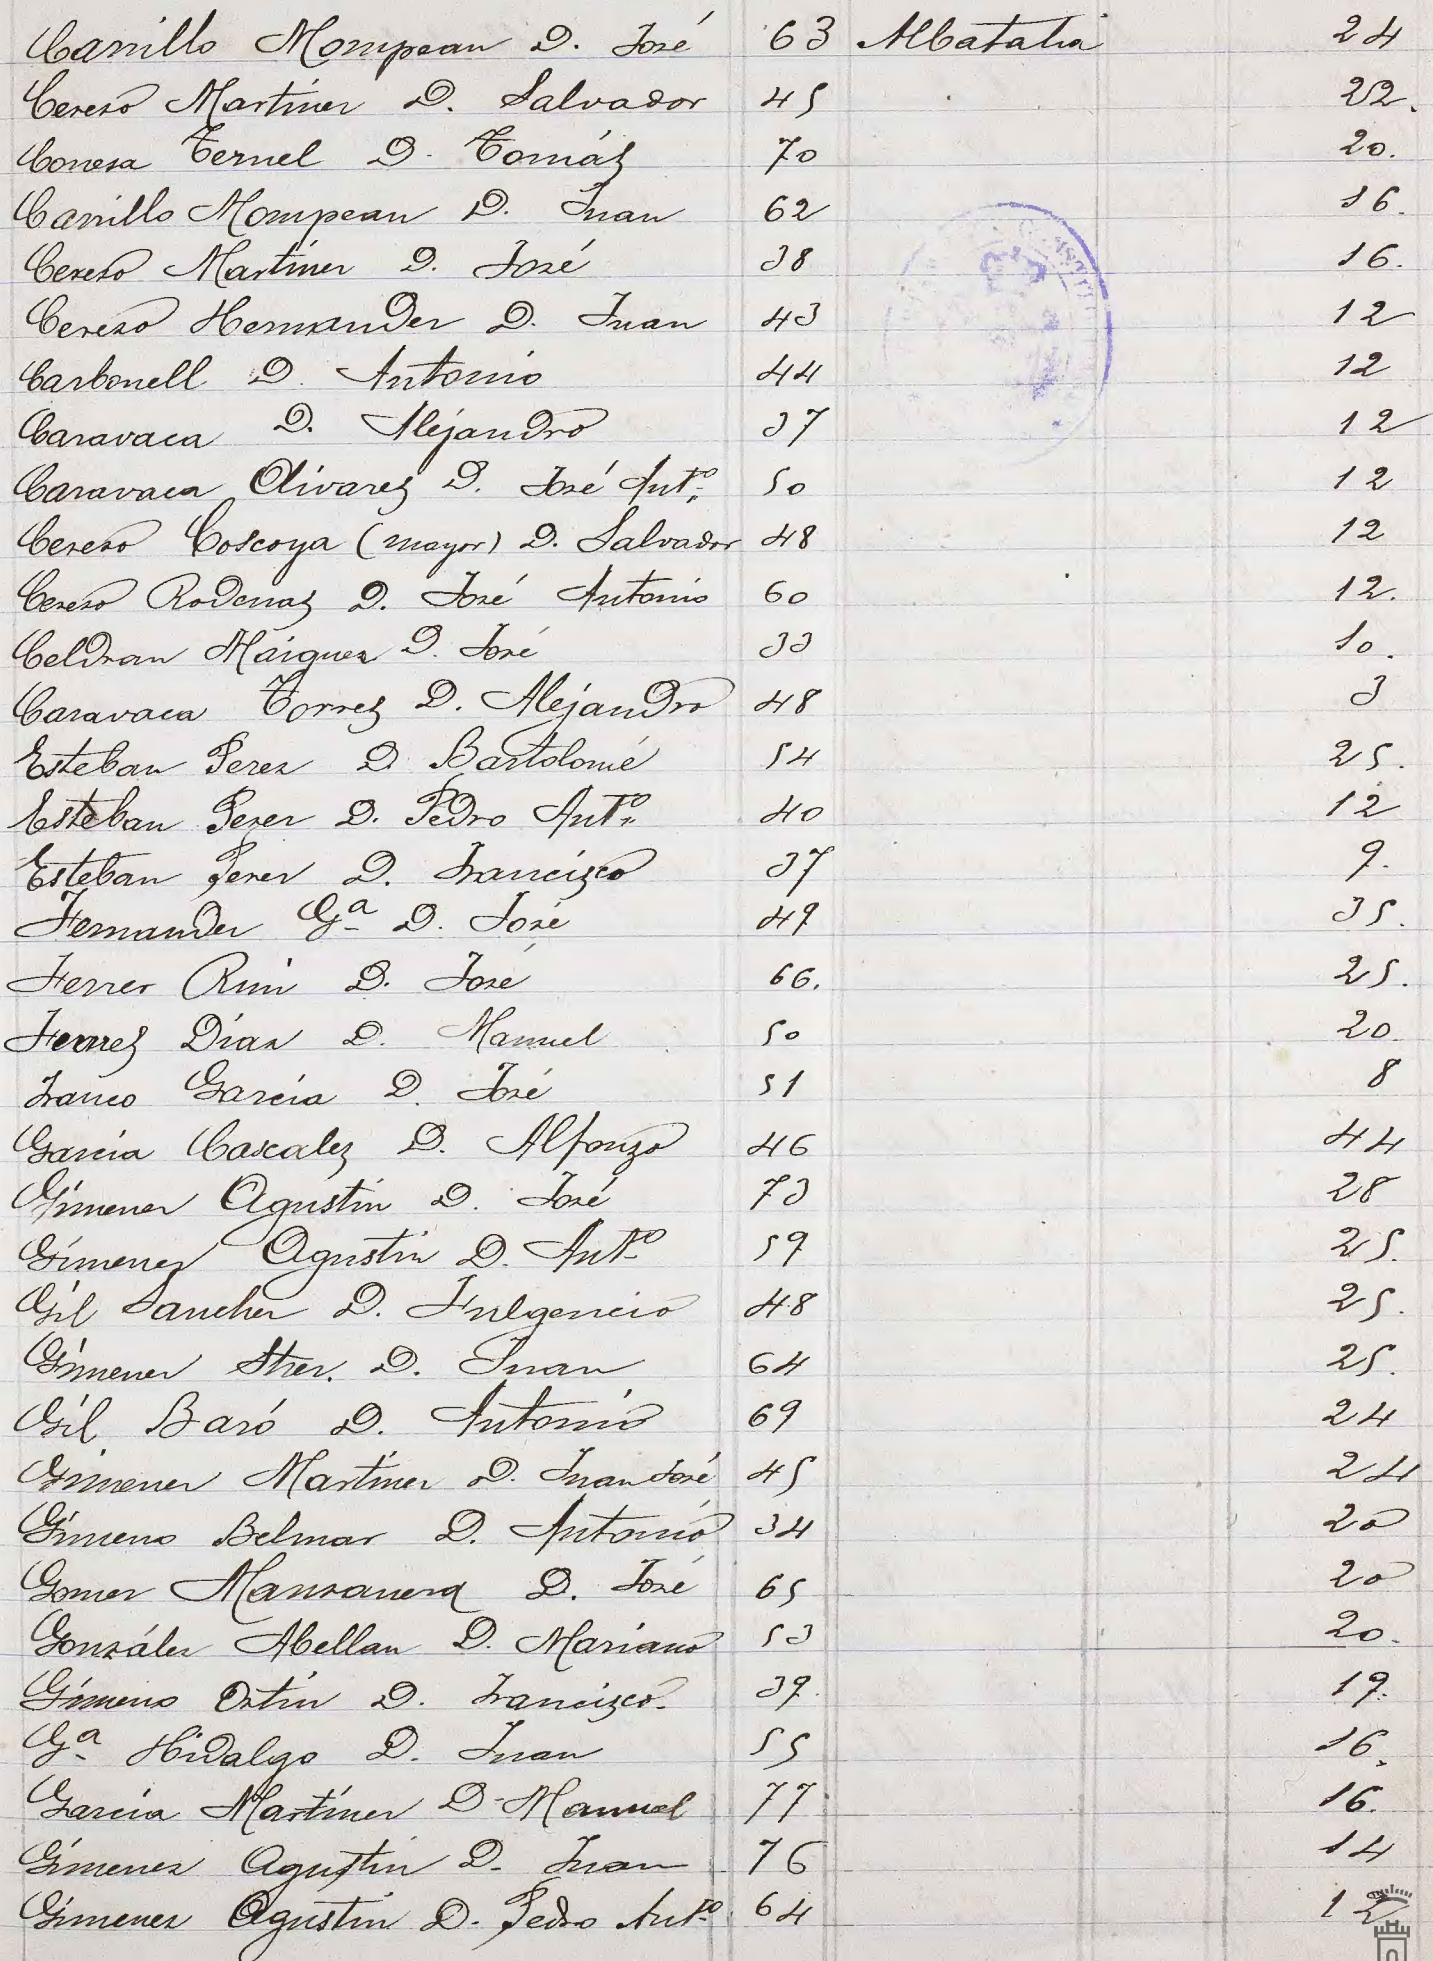 Carrillo Mompean D. José 63 Albatalia 24
Cerezo Martinez D. Salvador 45 22.
Conesa Teruel D. Tomás 70 20.
Carrillo Mompean D. Juan 62 16.
Cerezo Martinez D. José 38 16.
Cerezo Hernandez D. Juan 43 12
Carbonell D. Antonio 44 12
Caravaca D. Alejandro 37 12
Caravaca Olivares D. José Antº 50 12
Cerezo Coscoya (mayor) D. Salvador 48 12
Cerezo Rodenas D. José Antonio 60 12.
Celdran Maiquez D. José 33 10.
Caravaca Torres D. Alejandro 48 3
Esteban Perez D. Bartolomé 54 25.
Esteban Perez D. Pedro Antº 40 12
Esteban Perez D. Francisco 37 9.
Fernandez Gª D. José 49 35.
Ferrer Ruiz D. José 66. 25.
Ferrez Diaz D. Manuel 50 20.
Franco Garcia D. José 51 8
Garcia Cascales D. Alfonso 46 44
Gimenez Agustin D. José 73 28
Gimenez Agustin D. Antº 59 25.
Gil Sanchez D. Fulgencio 48 25.
Gimenez Shez. D. Juan 64 25.
Gil Baró D. Antonio 69 24
Gimenez Martinez D. Juan José 45 24
Gimeno Belmar D. Antonio 34 20
Gomez Manzanera D. José 65 20
González Abellan D. Mariano 53 20.
Gimeno Ortin D. Francisco. 39. 19.
Gª Hidalgo D. Juan 55 16.
Garcia Martinez D. Manuel 77 16.
Gimenez Agustin D. Juan 76 14
Gimenez Agustin D. Pedro Antº 64 12